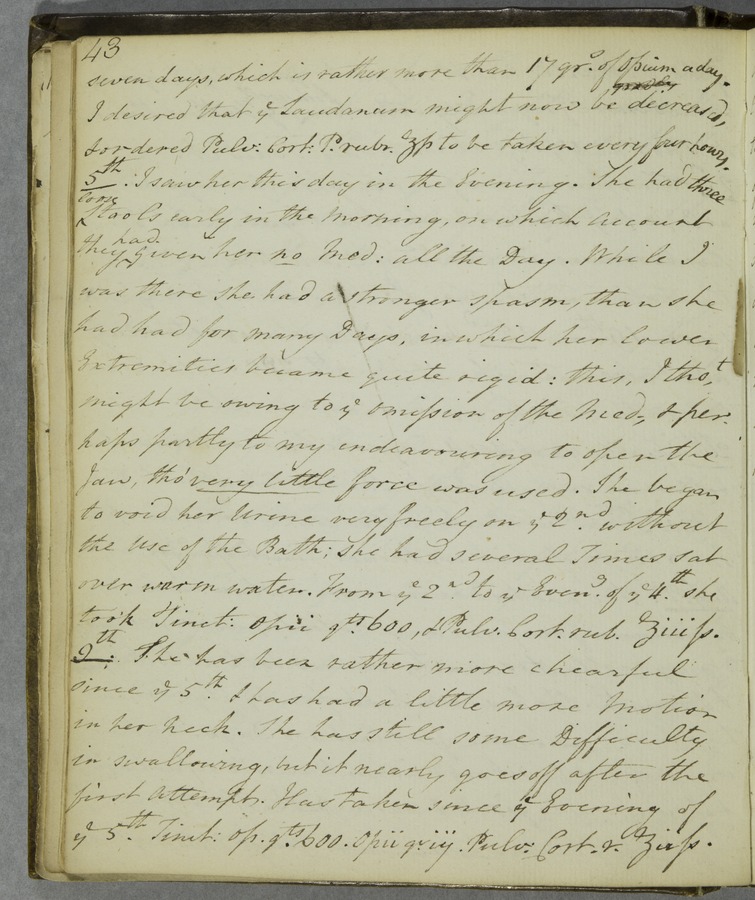 43
seven days, which is rather more than 17 grs. of Opium a day.
I desired that ye Laudanum might now be decreas'd,
& ordered Pulv: Cort: P. rubr. ʒſs to be taken every four hours.
5th: I saw her this day in the Evening. She had three
loose
Stools early in the Morning, on which account
had
they given her no Med: all the Day. While I
was there she had a stronger spasm, than she
had had for many Days, in which her lower
Extremities became quite rigid: this, I thot,
might be owing to ye omission of the Med, & per-
haps partly to my endeavouring to open the
Jaw, tho' very little force was used. She began
to void her Urine very freely on ye 2nd. without
the Use of the Bath; she had several Times sat
over warm water. From ye 2nd. to ye Eveng. of ye 4th. she
took Tinct: Opii gts. 600, & Pulv. Cort. rub. ℥iiiſs.
9th: She has been rather more chearful
since ye 5th. & has had a little more Motion
in her Neck. She has still some Difficulty
in swallowing, but it nearly goes off after the
first Attempt. Has taken since ye Evening of
ye 5th. Tinct: Op. gts. 600. Opii gr. iij. Pulv: Cort. r. ℥iiſs.